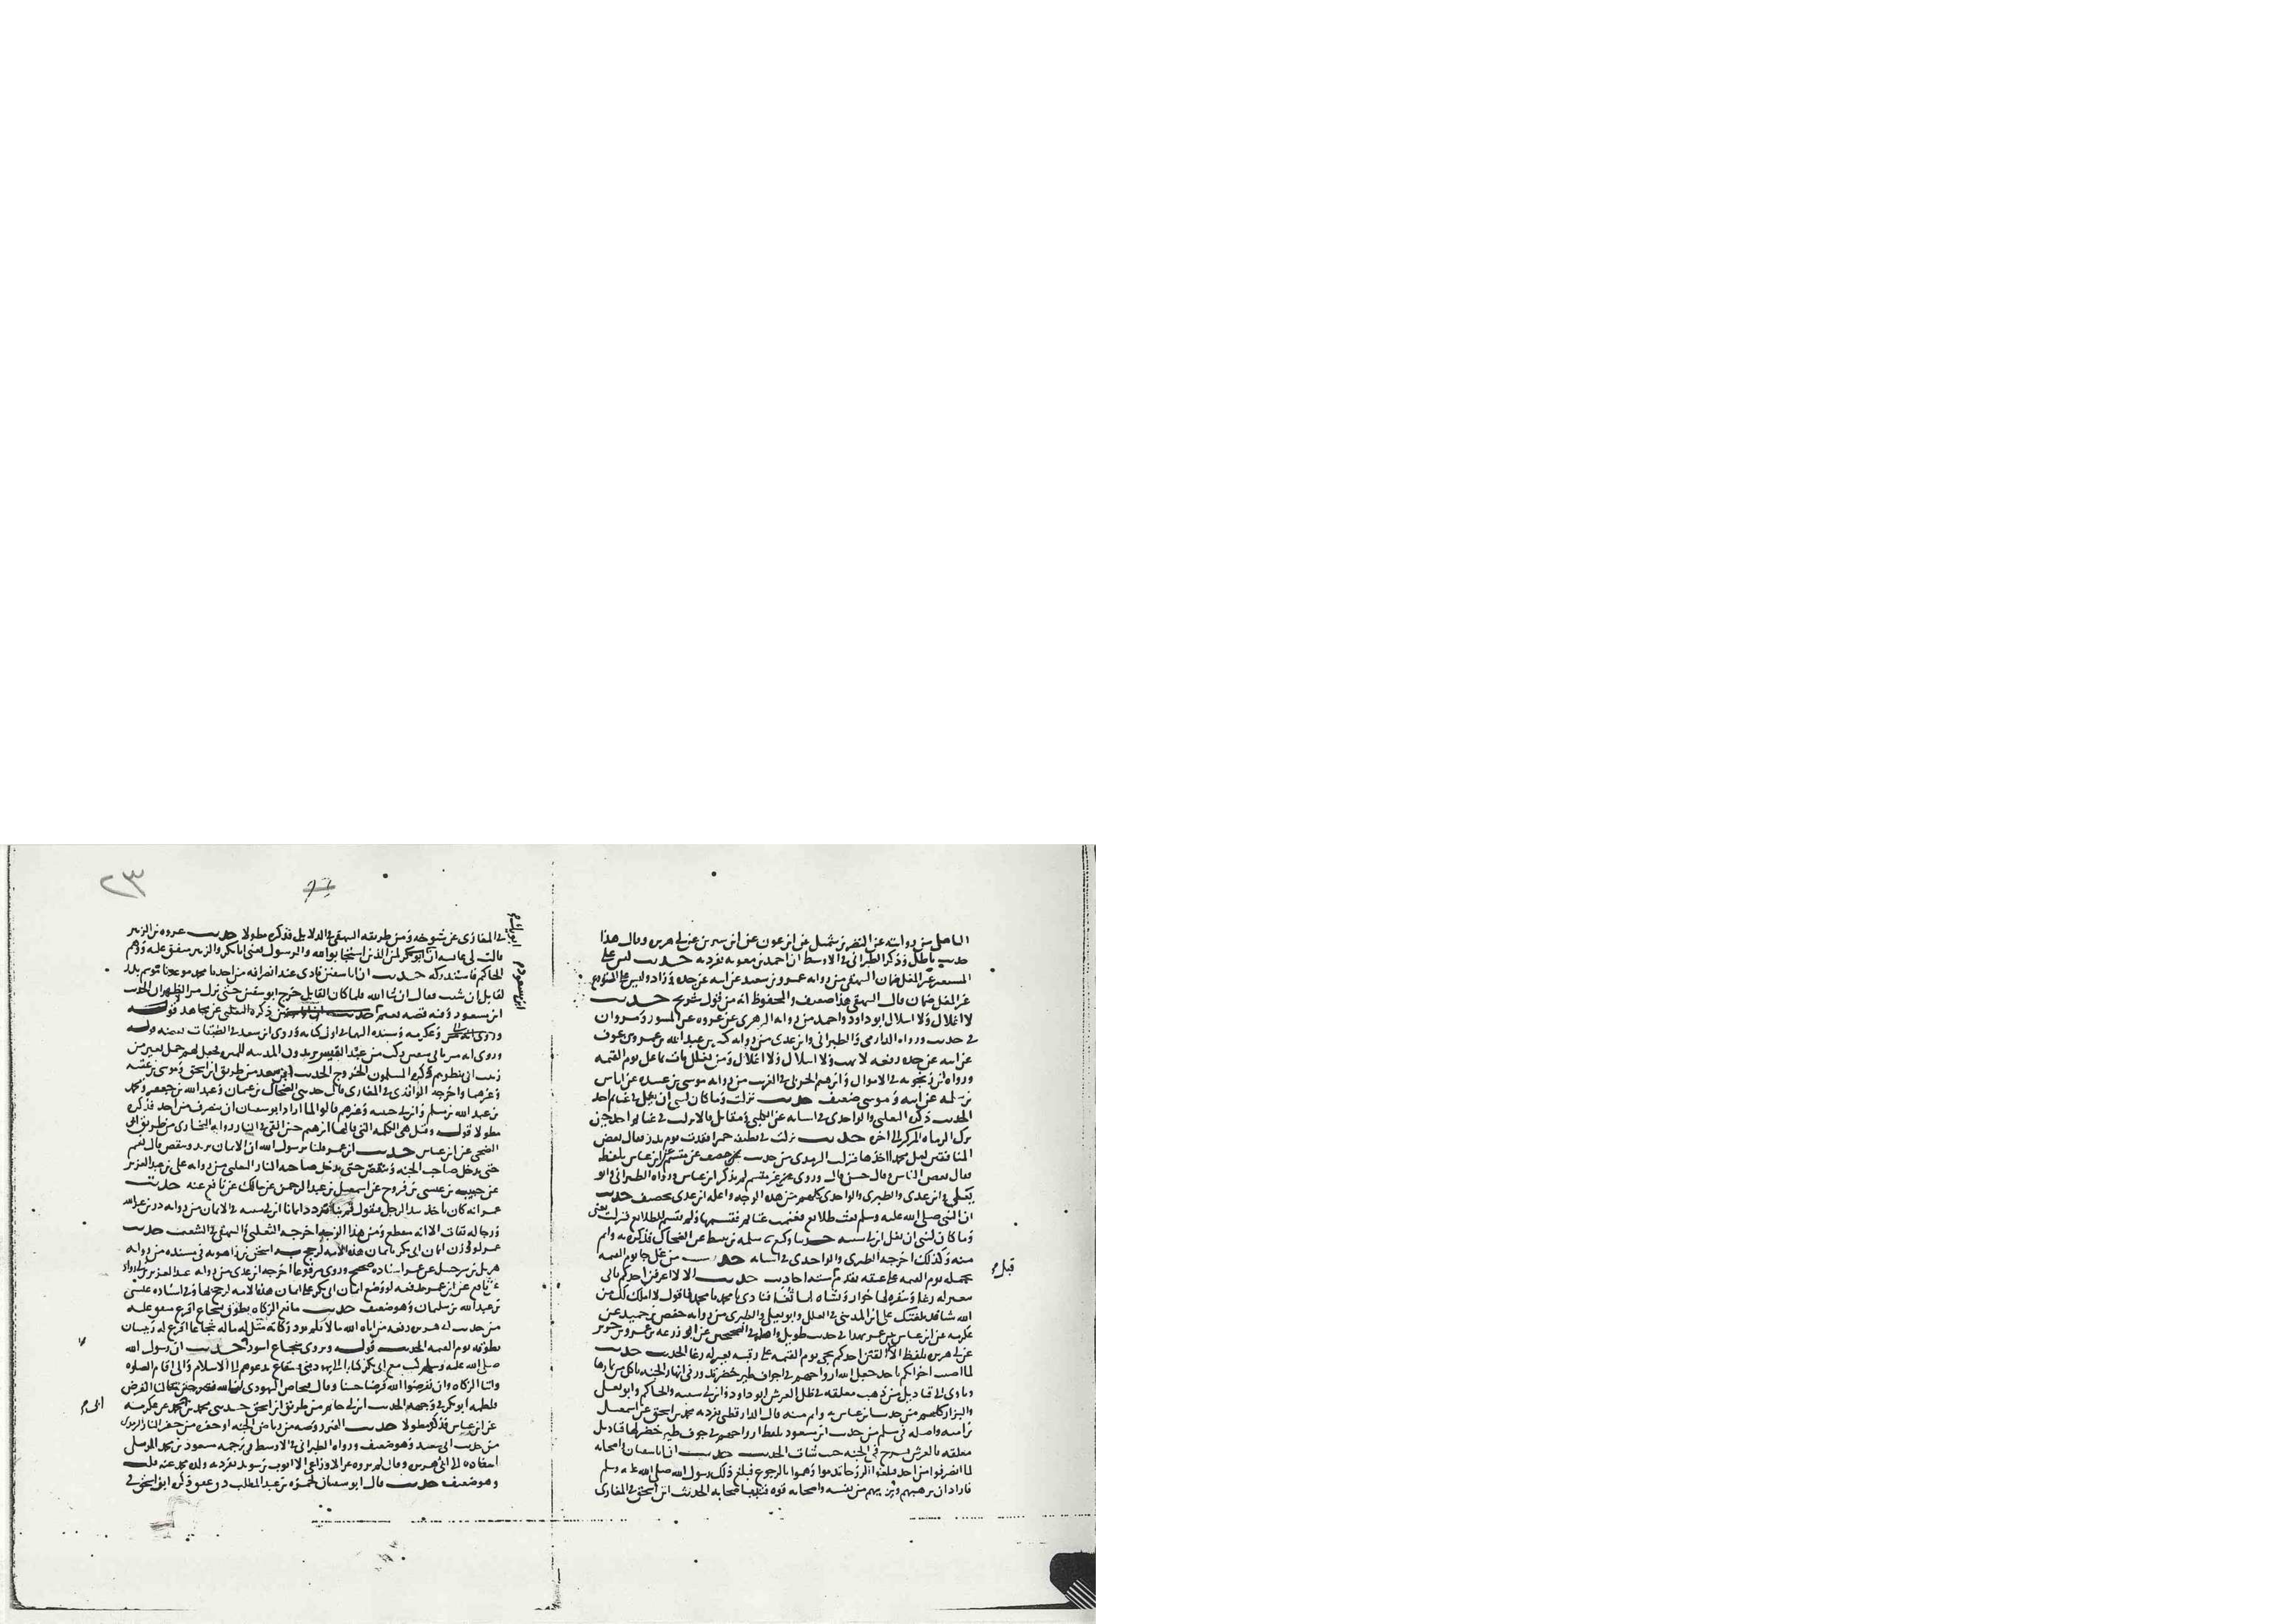 الباهلى من روايته عن النضر بن شميل عن ابن عون عن ابن سيرين عن ابى هريره وقال هذا
حديث باطل وذكر الطبرانى فى الاوسط ان احمد بن معويه تفرد به حديث ليس على
المستعير غير المغل ضمان البيهقى من روايه عمرو بن سعيد عن ابيه عن جده وزاد وليس على المستودع
غير المغل ضمان قال البيهقى هذا ضعيف والمحفوظ انه من قول شريح حديث
لا اغلال ولا اسلال ابو داود واحمد من روايه الزهرى عن عروه عن المسور ومروان
فى حديث ورواه الدارمى والطبرانى وابن عدى من روايه كثير بن عبد الله بن عمرو بن عوف
عن ابيه عن جده رفعه لا نهب ولا اسلال ولا اغلال ومن يغلل يات بما غل يوم القيمه
ورواه ابن زنجويه فى الاموال وابرهيم الحربى فى الغريب من روايه موسى بن عبيده عن اياس
بن سلمه عن ابيه وموسى ضعيف حديث نزلت وما كان لنبى ان يغل فى غنايم احد
الحديث ذكره الثعلبى والواحدى فى اسبابه عن الكلبى ومقاتل قالا نزلت فى غنايم احد حين
ترك الرماه المركز الى اخره حديث نزلت فى قطيفه حمرا فقدت يوم بدر فقال بعض
المنافقين لعل محمدا اخذها فنزلت الترمذى من حديث خصيف عن مقسم عن ابن عباس بلفظ
فقال بعض الناس وقال حسن قال وروى عن مقسم لم يذكر ابن عباس ورواه الطبرانى وابو
يعلى وابن عدى والطبرى والواحدى كلهم من هذه الوجه واعله ابن عدى بخصيف حديث
ان النبى صلى الله عليه وسلم بعث طلايع فغنمت غنايم فقسمها ولم يقسم للطلايع فنزلت يعنى
وما كان لنبى ان يغل ابن ابى شيبه حدثنا وكيع ثنا سلمه بن نبيط عن الضحاك فذكره به واتم
منه وكذلك اخرجه الطبرى والواحدى فى اسبابه حديث من غل جا يوم القيمه
يحمله يوم القيمه على عنقه تقدم فى سته احاديث حديث الا لا اعرفن احدكم ياتى
ببعير له رغا وببقره لها خوار وبشاه لها ثغا فنادى يا محمد يا محمد فاقول لا املك لك من
الله شيا قد بلغتك على ابن المدينى فى العلل وابو يعلى والطبرى من روايه حفص بن حميد عن
عكرمه عن ابن عباس عن عمر بهذا فى حديث طويل واصله فى الصحيحين عن ابى زرعه بن عمرو بن جرير
عن ابى هريره بلفظ لا الفين احدكم يجى يوم القيمه على رقبته بعير له رغا الحديث حديث
لما اصيب اخوانكم باحد جعل الله ارواحهم فى اجواف طير خضر ترد فى انهار الجنه تاكل من ثمارها
وتاوى الى قناديل من ذهب معلقه فى ظل العرش ابو داود وابن ابى شيبه والحاكم وابو يعلى
والبزار كلهم من حديث ابن عباس به واتم منه قال الدارقطنى تفرد به محمد بن اسحق عن اسمعيل
بن اميه واصله فى مسلم من حديث ابن مسعود بلفظ ارواحهم فى جوف طير خضر لها قناديل
معلقه بالعرش تسرح فى الجنه حيث شات الحديث حديث ان ابا سفيان واصحابه
لما انصرفوا من احد فبلغوا الروحا ندموا وهموا بالرجوع فبلغ ذلك رسول الله صلى الله عليه وسلم
فاراد ان يرهبهم ويريهم من نفسه واصحابه قوه فندب اصحابه الحديث ابن اسحق فى المغازى
قبل م
٢٣
فى المغازى عن شيوخه ومن طريقه البيهقى فى الدلايل فذكره مطولا حديث عروه بن الزبير
قالت لى عايشه ان ابويك لمن الذين استجابوا لله والرسول تعنى ابا بكر والزبير متفق عليه ووهم
الحاكم فاستدركه حديث ان ابا سفين نادى عند انصرافه من احد يا محمد موعدنا موسم بدر
لقابل ان شيت فقال ان شا الله فلما كان القابل خرج ابو سفين حتى نزل مر الظهران الحديث
ابن سعود وفيه قصه نعيم ذكره الثعلبى عن مجاهد قوله
وعكرمه وسنده اليهما فى اول كتابه وروى ابن سعد فى الطبقات بعضه قوله
وروى انه مر بابى سفين ركب من عبد القيس يريدون المدينه للميره فجعل لهم حمل بعير من
زبيب ان ثبطوهم فكره المسلمون الخروج الحديث ابن سعد من طريق ابن اسحق وموسى بن عقبه
وغيرهما واخرجه الواقدى فى المغازى قال حدثنى الضحاك بن عثمان وعبد الله بن جعفر ومحمد
بن عبد الله بن مسلم وابن ابى حبيبه وغيرهم قالوا لما اراد ابو سفيان ان ينصرف من احد فذكره
مطولا قوله وقيل هى الكلمه التى قالها ابرهيم حين القى فى النار رواه البخارى من طريق ابى
الضحى عن ابن عباس حديث ابن عمر قلنا يرسول الله ان الايمان يزيد وينقص قال نعم
حتى يدخل صاحبه الجنه وينقص حتى يدخل صاحبه النار الثعلبى من روايه على بن عبد العزيز
عن حبيب بن عيسى بن فروخ عن اسمعيل بن عبد الرحمن عن مالك عن نافع عنه حديث
عمر انه كان ياخذ بيد الرجل فيقول قم بنا نزدد ايمانا ابن ابى شيبه فى الايمان من روايه ذر بن عبد الله
ورجاله ثقات الا انه منقطع ومن هذا الوجه اخرجه الثعلبى والبيهقى فى الشعب حديث
عمر لو وزن ايمان ابى بكر بايمان هذه الامه لرجح به اسحق بن راهويه فى مسنده من روايه
هزيل بن شرحبيل عن عمر اسناده صحيح وروى مرفوعا اخرجه ابن عدى من روايه عبد العزيز بن ابى رواد
عن نافع عن ابن عمر رفعه لو وضع ايمان ابى بكر على ايمان هذه الامه لرجح بها وفى اسناده عيسى
بن عبد الله بن سلمان وهو ضعيف حديث مانع الزكاه يطوق بشجاع اقرع متفق عليه
من حديث ابى هريره رفعه من اتاه الله مالا فلم يود زكاته مثل له ماله شجاعا اقرع له زبيبتان
يطوقه يوم القيمه الحديث قوله ويروى بشجاع اسود حديث ان رسول الله
صلى الله عليه وسلم كتب مع ابى بكر كتابا الى يهود بنى قينقاع يدعوهم الى الاسلام والى اقام الصلوه
وايتا الزكاه وان يقرضوا الله قرضا حسنا وقال فنحاص اليهودى ان الله فقير حتى يسالنا القرض
فلطمه ابو بكر فى وجهه الحديث ابن ابى حاتم من طريق ابن اسحق حدثنى محمد بن ابى محمد عن عكرمه
عن ابن عباس فذكره مطولا حديث القبر روضه من رياض الجنه او حفره من حفر النار الترمذى
من حديث ابى سعيد وهو ضعيف ورواه الطبرانى فى الاوسط فى ترجمه مسعود بن محمد الرملى
اسناده الى ابى هريره وقال لم يروه عن الاوزاعى الا ايوب بن سويد تفرد به ولده محمد عنه قلت
وهو ضعيف حديث قال ابو سفيان لحمزه بن عبد المطلب ذق عقق ذكره ابن اسحق فى